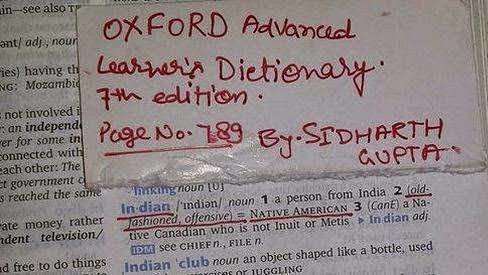 in—see also
OXFORD Advanced
Learner's Dictionary.
7th edition.
Page No. 789 By. SIDHARTH
GUPTA
ant/ adj., noun
ies) having th
NG: Mozambic
not involved i
r: an independe
er for some in
connected with
each other: The
ct government c
s reached the same
vate money rather
ndent television/
d free to do things
linking noun [U]
In·dian /ˈɪndiən/ noun 1 a person from India 2 (old-
fashioned, offensive) = NATIVE AMERICAN 3 (CanE) a Na-
tive Canadian who is not Inuit or Metis ▸ In·dian adj.
IDM see CHIEF n., FILE n.
Indian ˈclub noun an object shaped like a bottle, used
or JUGGLING